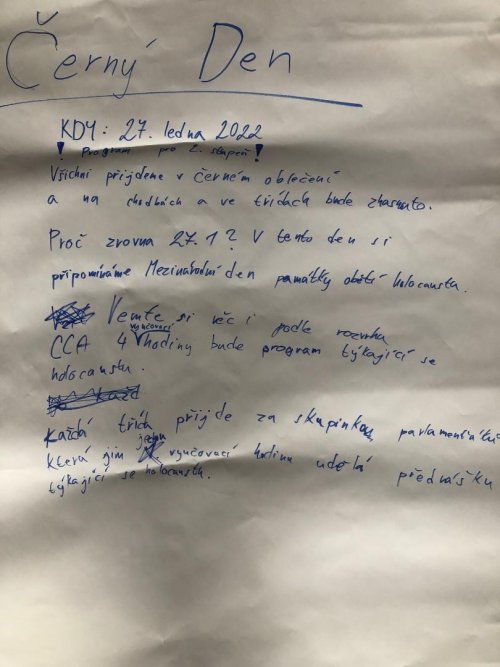 Černý Den
KDY: 27. ledna 2022
! Program pro 2. stupeň !
Všichni přijdeme v černém oblečení
a na chodbách a ve třídách bude zhasnuto.
Proč zrovna 27.1? V tento den si
připomínáme Mezinárodní den památky obětí holocaustu.
Vemte si věc i podle rozvrhu
CCA 4 vyučovací hodiny bude program týkající se
holocaustu.
Každá třída přijde za skupinkou parlamenťáků
která jim jednu vyučovací hodinu udělá přednášku
týkající se holocaustu.